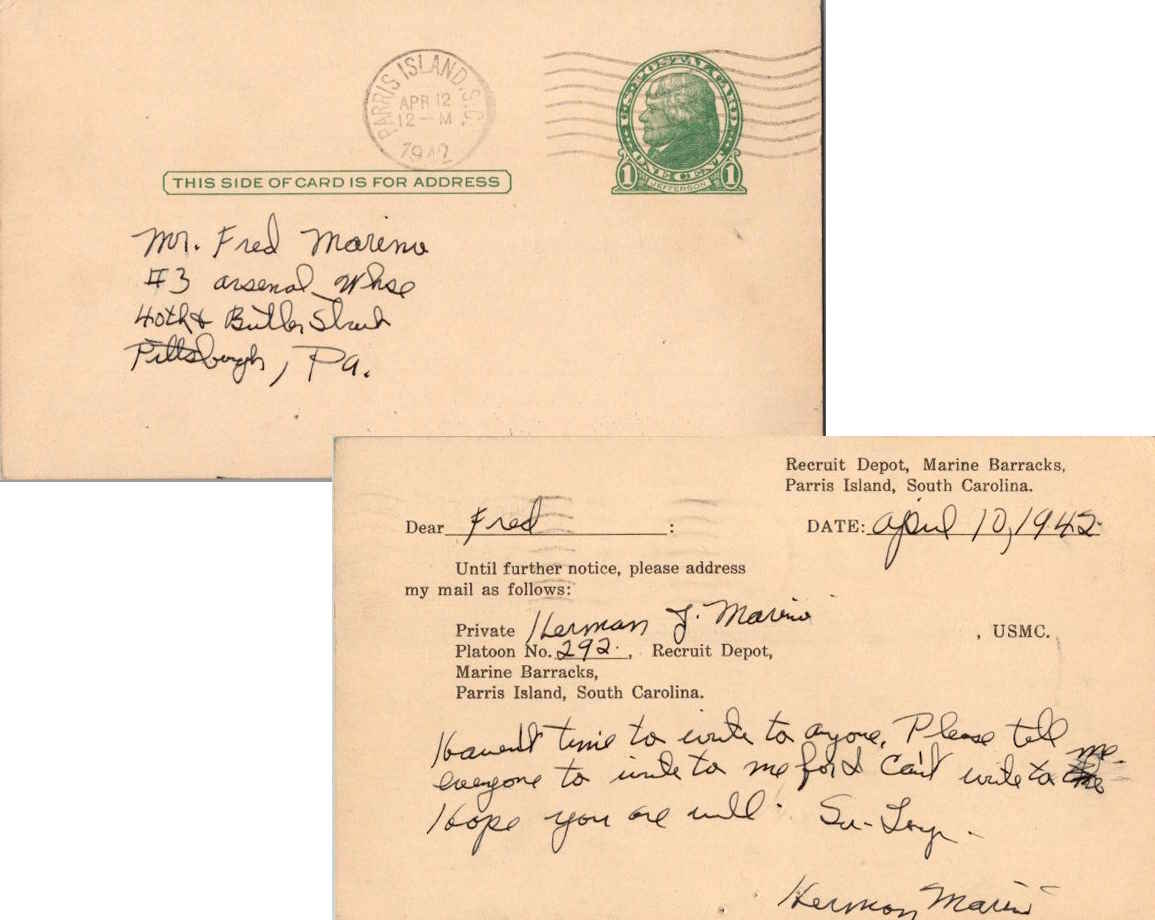 PARRIS ISLAND, S.C.
APR 12
12-M
1942
U.S. POSTAL CARD
ONE CENT
1 JEFFERSON 1
THIS SIDE OF CARD IS FOR ADDRESS
Mr. Fred Marino
#3 arsenal Whse
40th & Butler Street
Pittsburgh, Pa.
Recruit Depot, Marine Barracks,
Parris Island, South Carolina.
Dear Fred :
DATE: April 10, 1942
Until further notice, please address
my mail as follows:
Private Herman J. Marino , USMC.
Platoon No. 292. , Recruit Depot,
Marine Barracks,
Parris Island, South Carolina.
Haven't time to write to anyone. Please tell
everyone to write to me for I can't write to me.
Hope you are well. So-Long-
Herman Marino